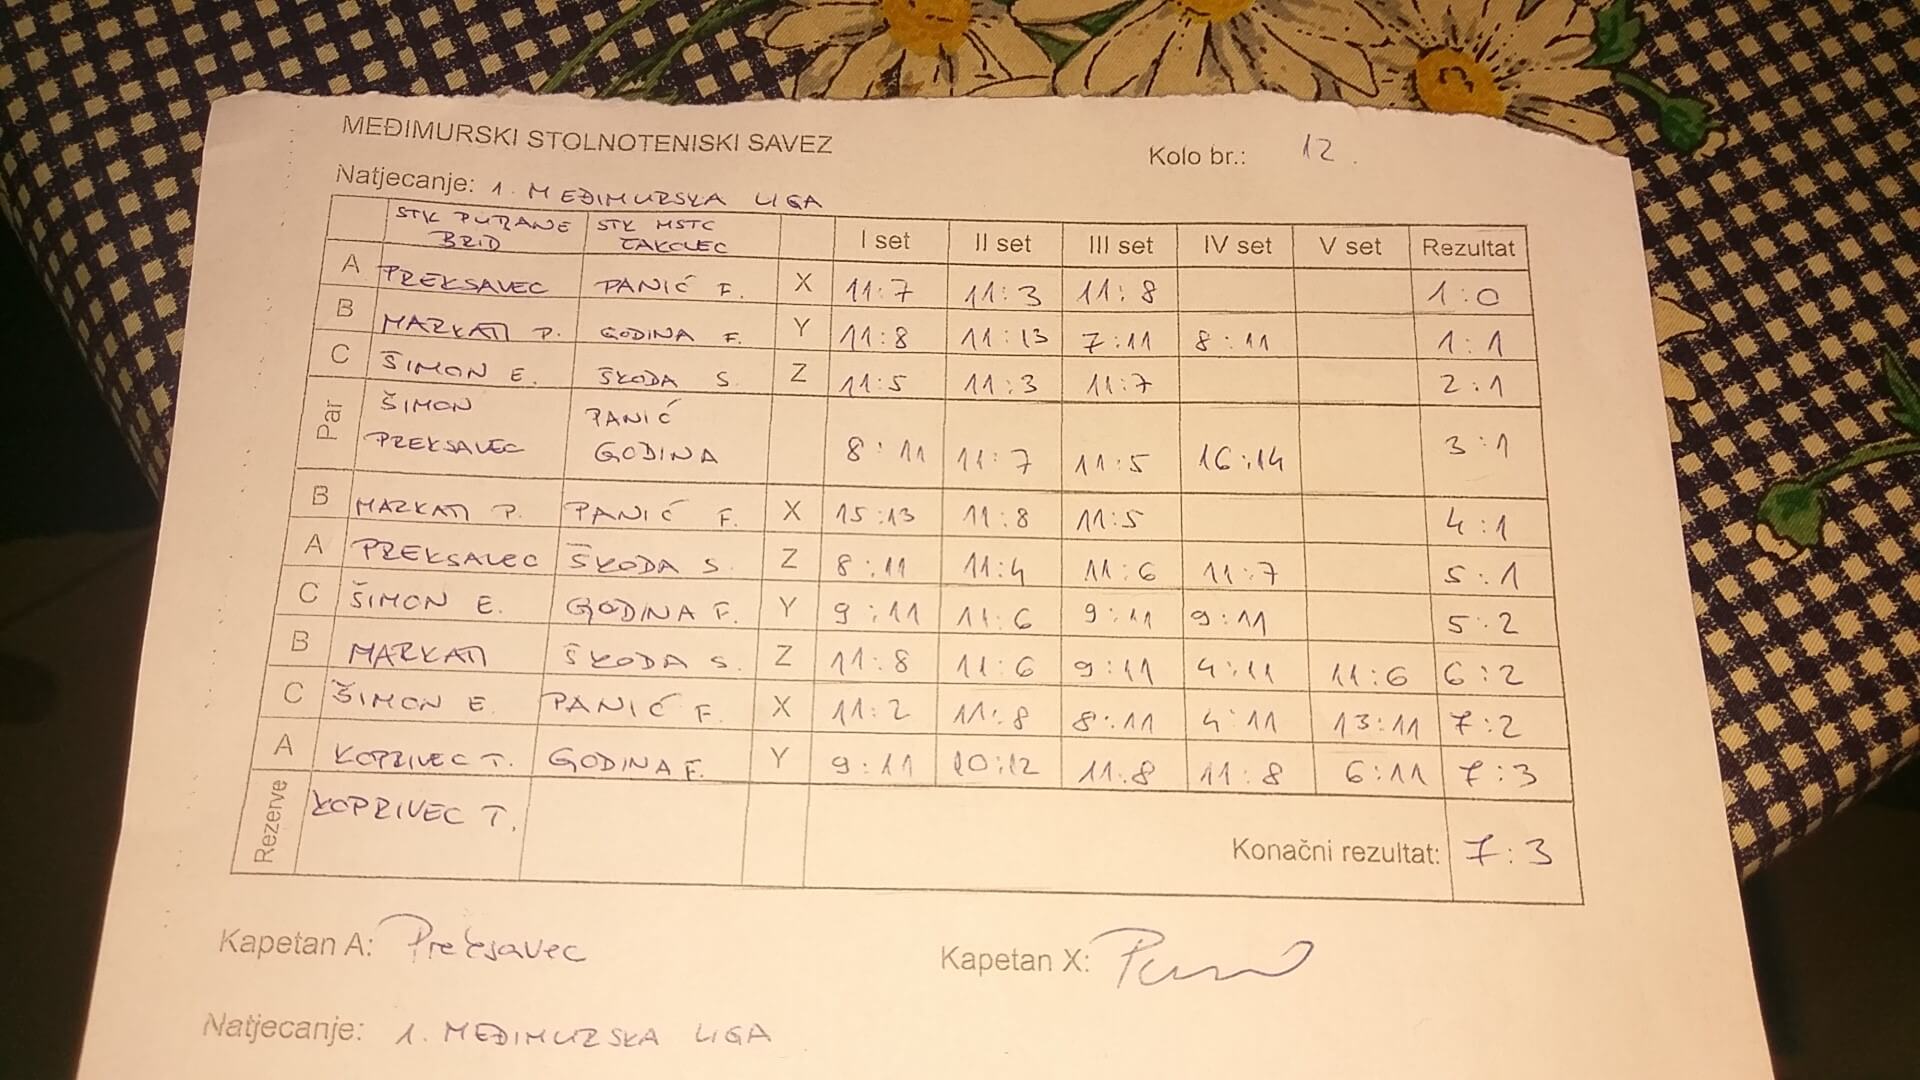 MEĐIMURSKI STOLNOTENISKI SAVEZ
Kolo br.: 12.
Natjecanje: 1. MEĐIMURSKA LIGA
STK PURANE BRID STK MSTC ČAKOVEC I set II set III set IV set V set Rezultat
A PREKSAVEC PANIĆ F. X 11:7 11:3 11:8 1:0
B MARKATI P. GODINA F. Y 11:8 11:13 7:11 8:11 1:1
C ŠIMON E. ŠKODA S. Z 11:5 11:3 11:7 2:1
Par ŠIMON PREKSAVEC PANIĆ GODINA 8:11 11:7 11:5 16:14 3:1
B MARKATI P. PANIĆ F. X 15:13 11:8 11:5 4:1
A PREKSAVEC ŠKODA S. Z 8:11 11:4 11:6 11:7 5:1
C ŠIMON E. GODINA F. Y 9:11 11:6 9:11 9:11 5:2
B MARKATI ŠKODA S. Z 11:8 11:6 9:11 4:11 11:6 6:2
C ŠIMON E. PANIĆ F. X 11:2 11:8 8:11 4:11 13:11 7:2
A KOPRIVEC T. GODINA F. Y 9:11 10:12 11:8 11:8 6:11 7:3
Rezerve KOPRIVEC T.
Konačni rezultat: 7:3
Kapetan A: Preksavec
Kapetan X:
Natjecanje: 1. MEĐIMURSKA LIGA